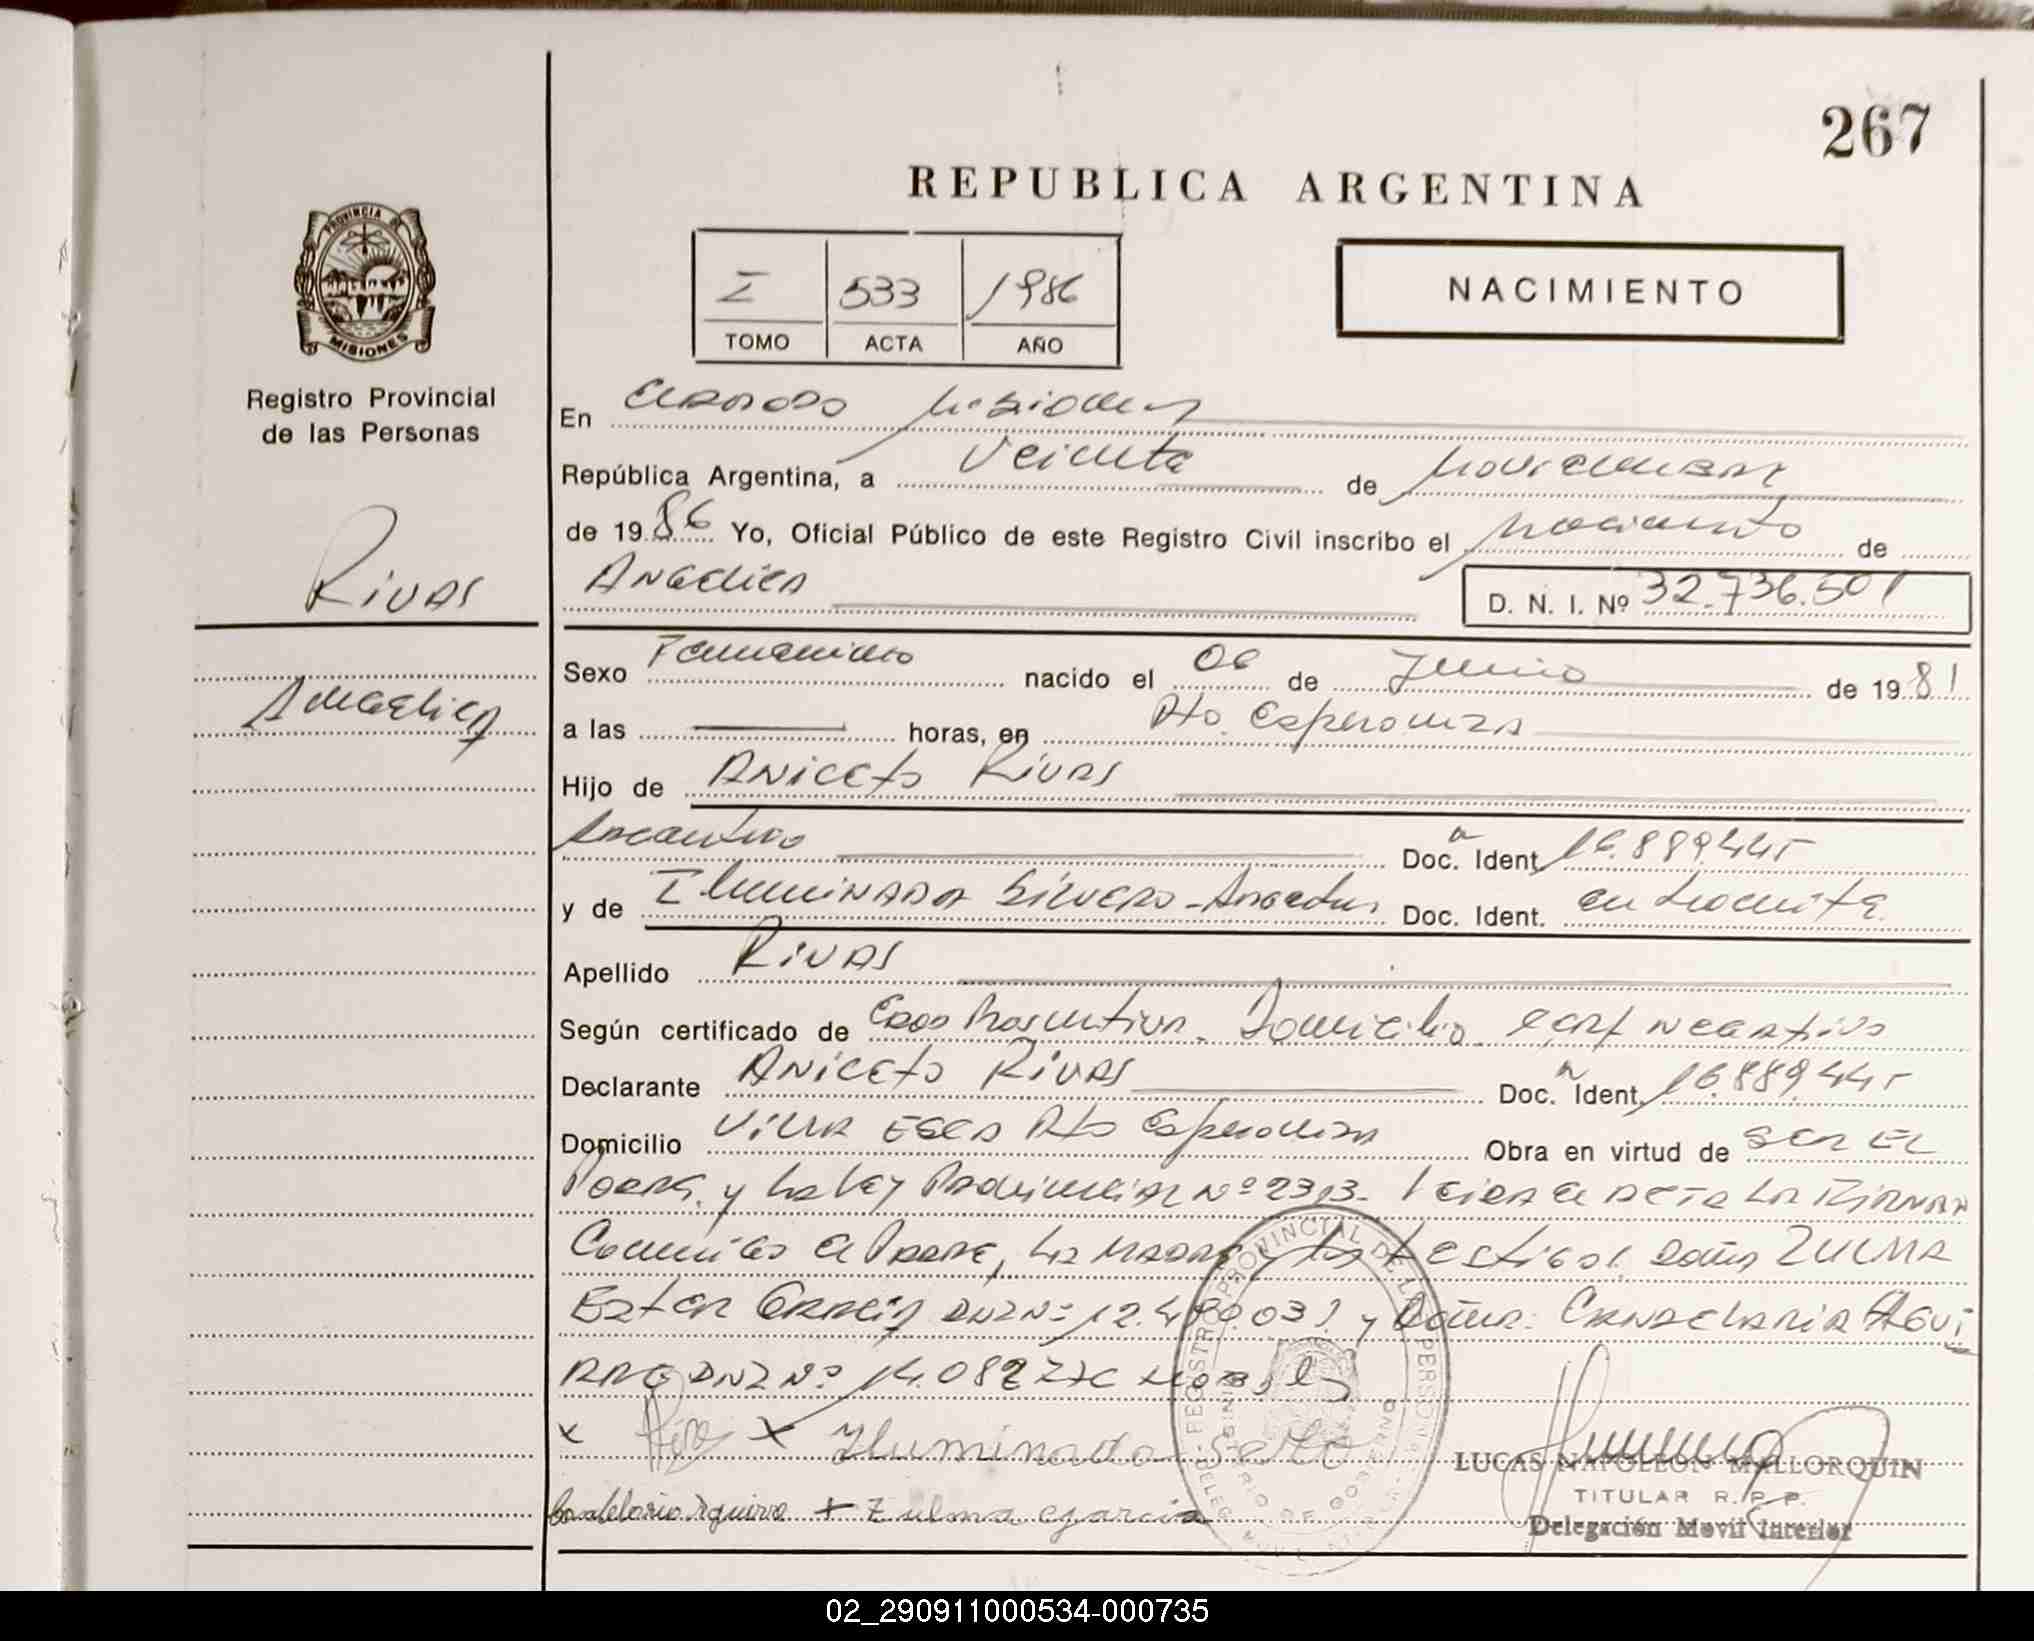 267
REPUBLICA ARGENTINA
PROVINCIA DE
MISIONES
I 533 1986
TOMO ACTA AÑO
NACIMIENTO
Registro Provincial
de las Personas
Rivas
Angelica
En Eldorado Misiones
República Argentina, a Veinte de Noviembre
de 1986 Yo, Oficial Público de este Registro Civil inscribo el Nacimiento de
Angelica
D. N. I. Nº 32.736.501
Sexo Femenino nacido el 06 de Junio de 1981
a las horas, en Pto. Esperanza
Hijo de Aniceto Rivas
Argentino Doc. Ident. 16.889.445
y de Iluminada Silvero - Argentina Doc. Ident. en tramite
Apellido Rivas
Según certificado de Domicilio negativo
Declarante Aniceto Rivas Doc. Ident. 16.889.445
Domicilio Villa Pto Esperanza Obra en virtud de ser el
Padre y la Ley Provincial Nº 2313. Leida el acta la firman
Conmigo el Padre, la Madre y los testigos doña Zulma
Ester Garcia DNI Nº 12.490.031 y doña Candelaria Agui
rre DNI Nº 14.082
x x Iluminada
Candelaria Aguirre + Zulma Garcia
LUCAS NAPOLEON MALLORQUIN
TITULAR R. P. P.
Delegación Movil Interior
02_290911000534-000735